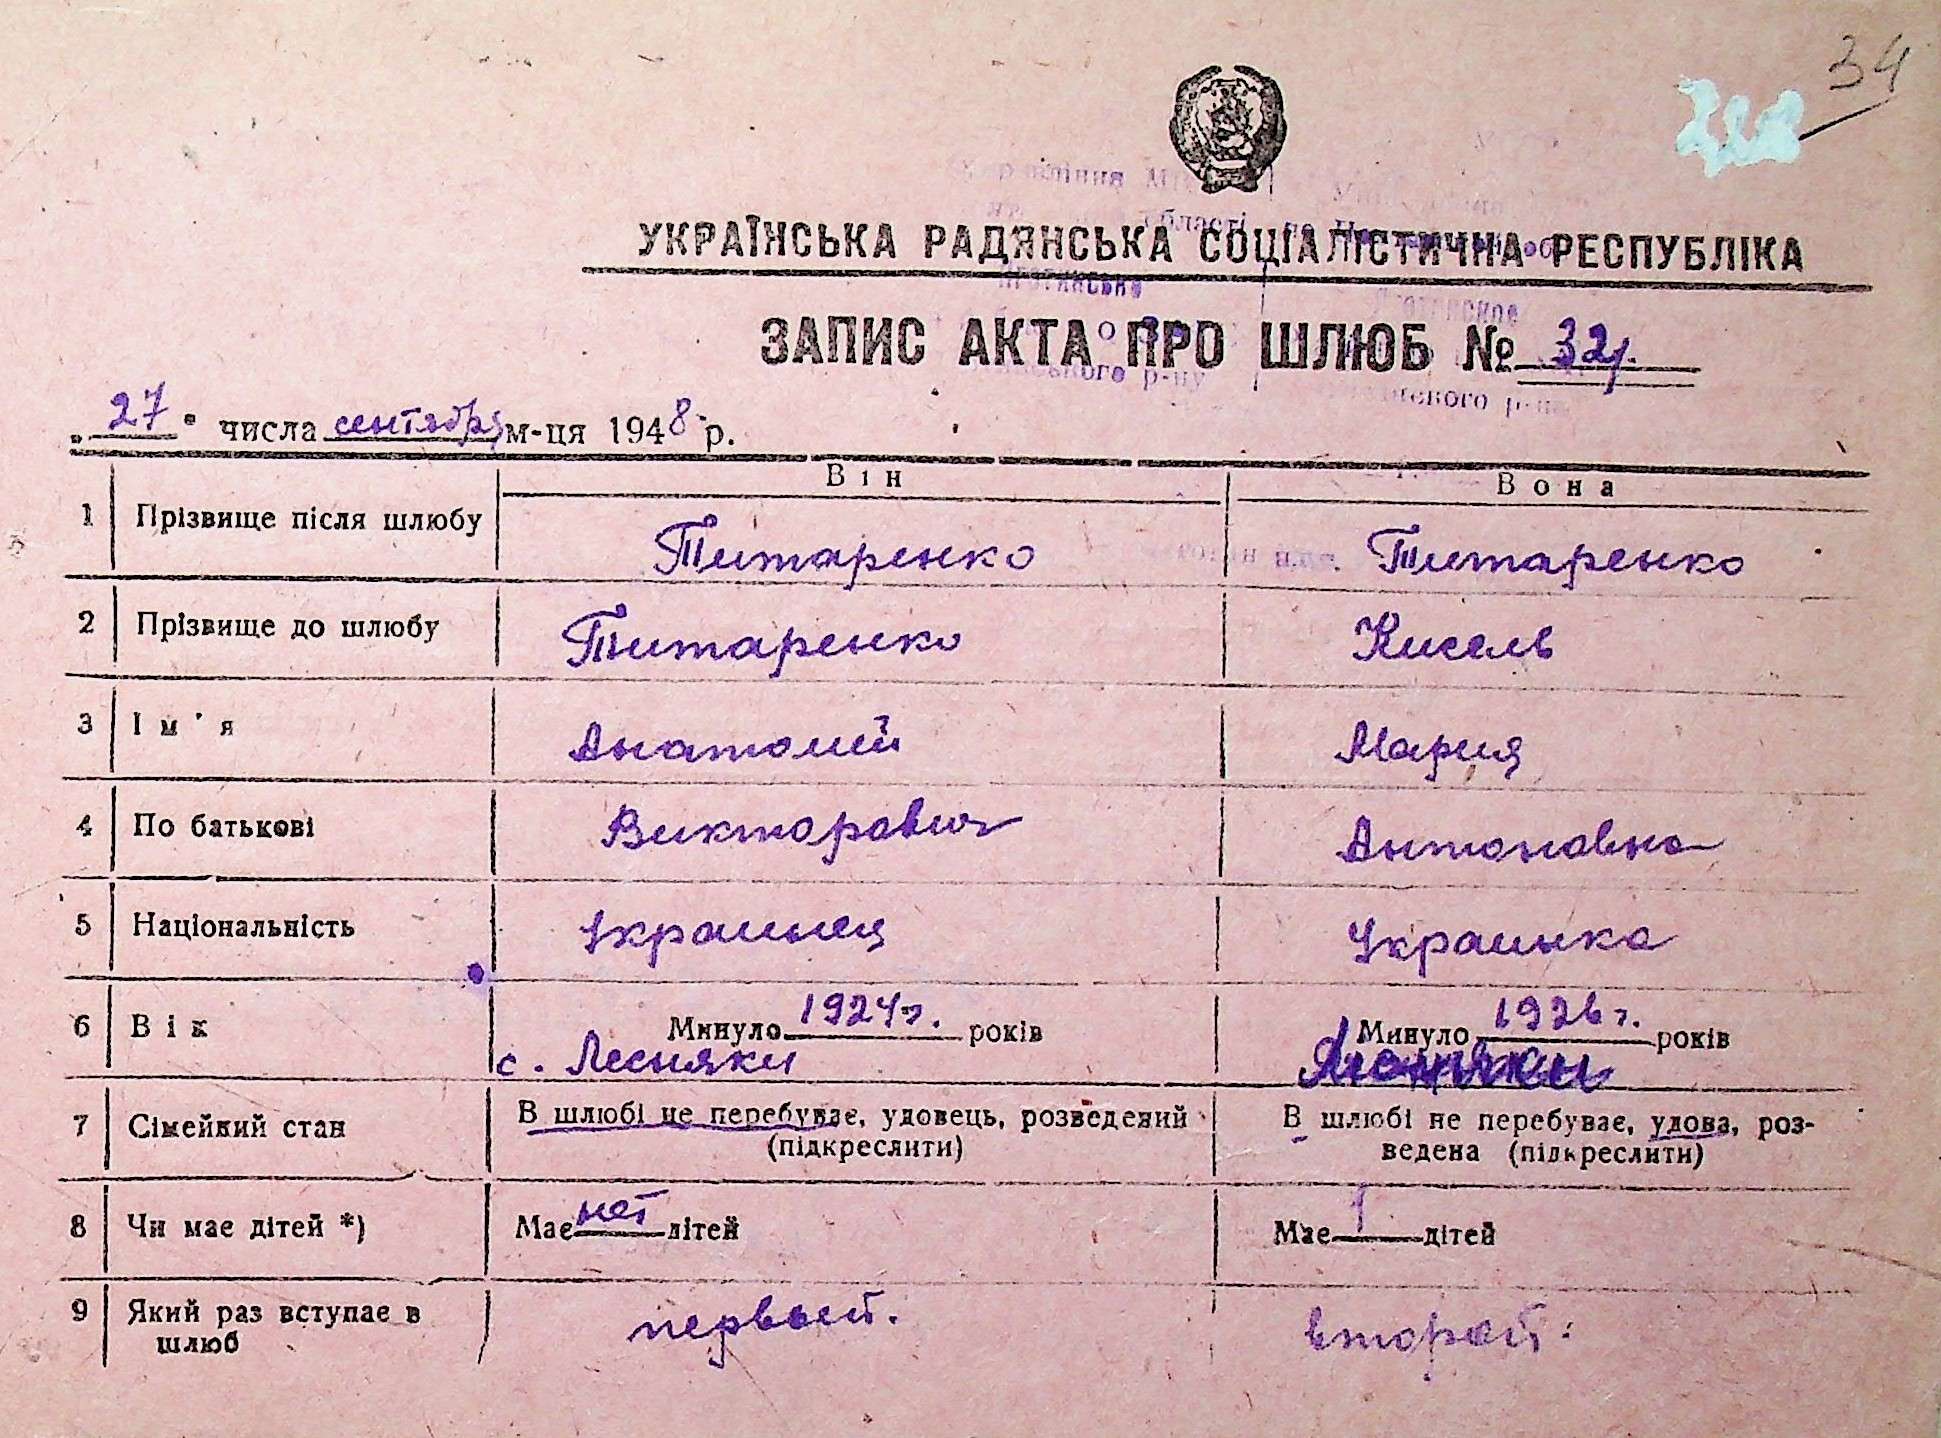 34
УКРАЇНСЬКА РАДЯНСЬКА СОЦІАЛІСТИЧНА РЕСПУБЛІКА
ЗАПИС АКТА ПРО ШЛЮБ № 32
„27" числа сентября м-ця 1948 р.
Він Вона
1 Прізвище після шлюбу Титаренко Титаренко
2 Прізвище до шлюбу Титаренко Кисель
3 Ім'я Анатолий Мария
4 По батькові Викторович Антоновна
5 Національність Украинец Украинка
6 Вік Минуло 1924 г. років Минуло 1926 г. років
с. Лесняки
7 Сімейний стан В шлюбі не перебуває, удовець, розведений В шлюбі не перебуває, удова, роз-
(підкреслити) ведена (підкреслити)
8 Чи має дітей *) Має нет дітей Має 1 дітей
9 Який раз вступає в первый. второй.
шлюб